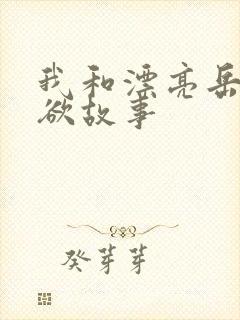 我和漂亮岳
欲故事
癸芽芽